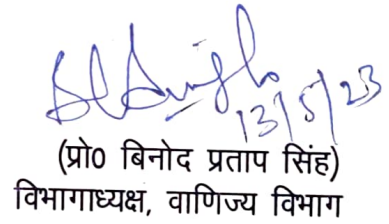 13/5/23
(प्रो0 बिनोद प्रताप सिंह)
विभागाध्यक्ष, वाणिज्य विभाग